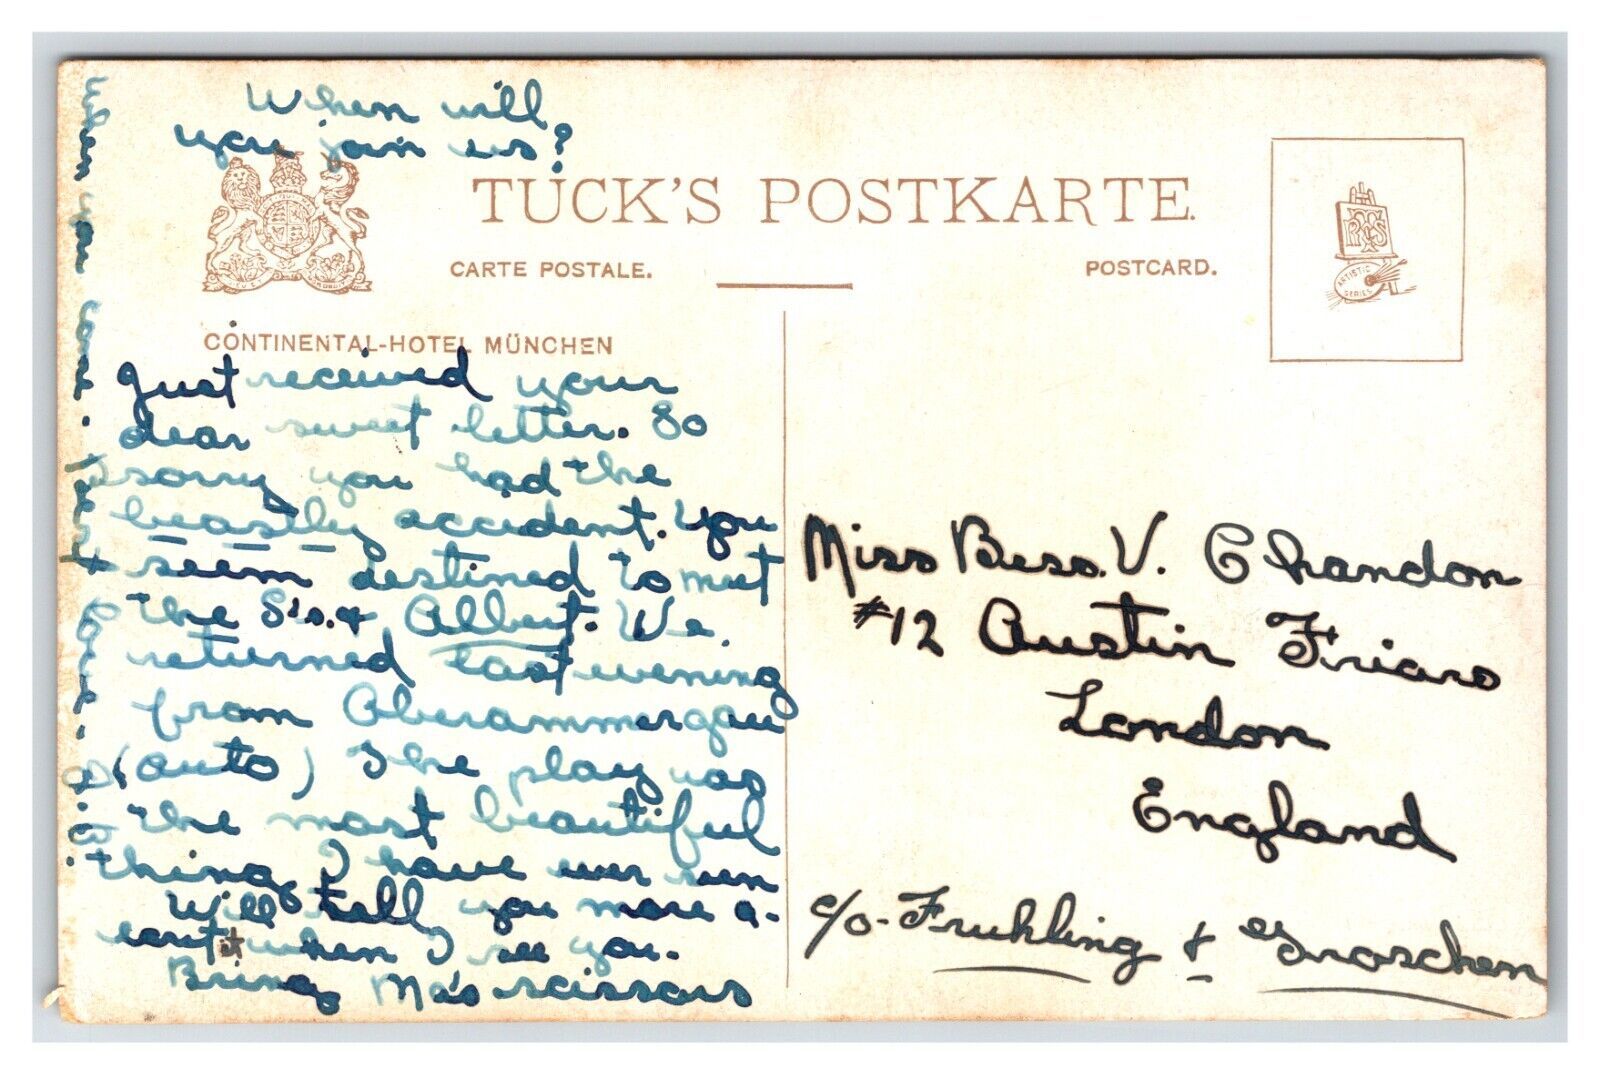 When will
you join us?
TUCK'S POSTKARTE.
CARTE POSTALE.
POSTCARD.
ARTISTIC
SERIES
CONTINENTAL-HOTEL MÜNCHEN
Just received your
dear sweet letter. So
sorry you had the
beastly accident. You
seem destined to meet
the Sis. & Albert. We
returned last evening
from Oberammergau
(auto) The play was
the most beautiful
thing I have ever seen
Will tell you more a-
bout it when I see you.
Bring Ma's scissors
when you come.
Miss Bess. V. Chandon
#12 Austin Friars
London
England
c/o- Fruhling & Groschen